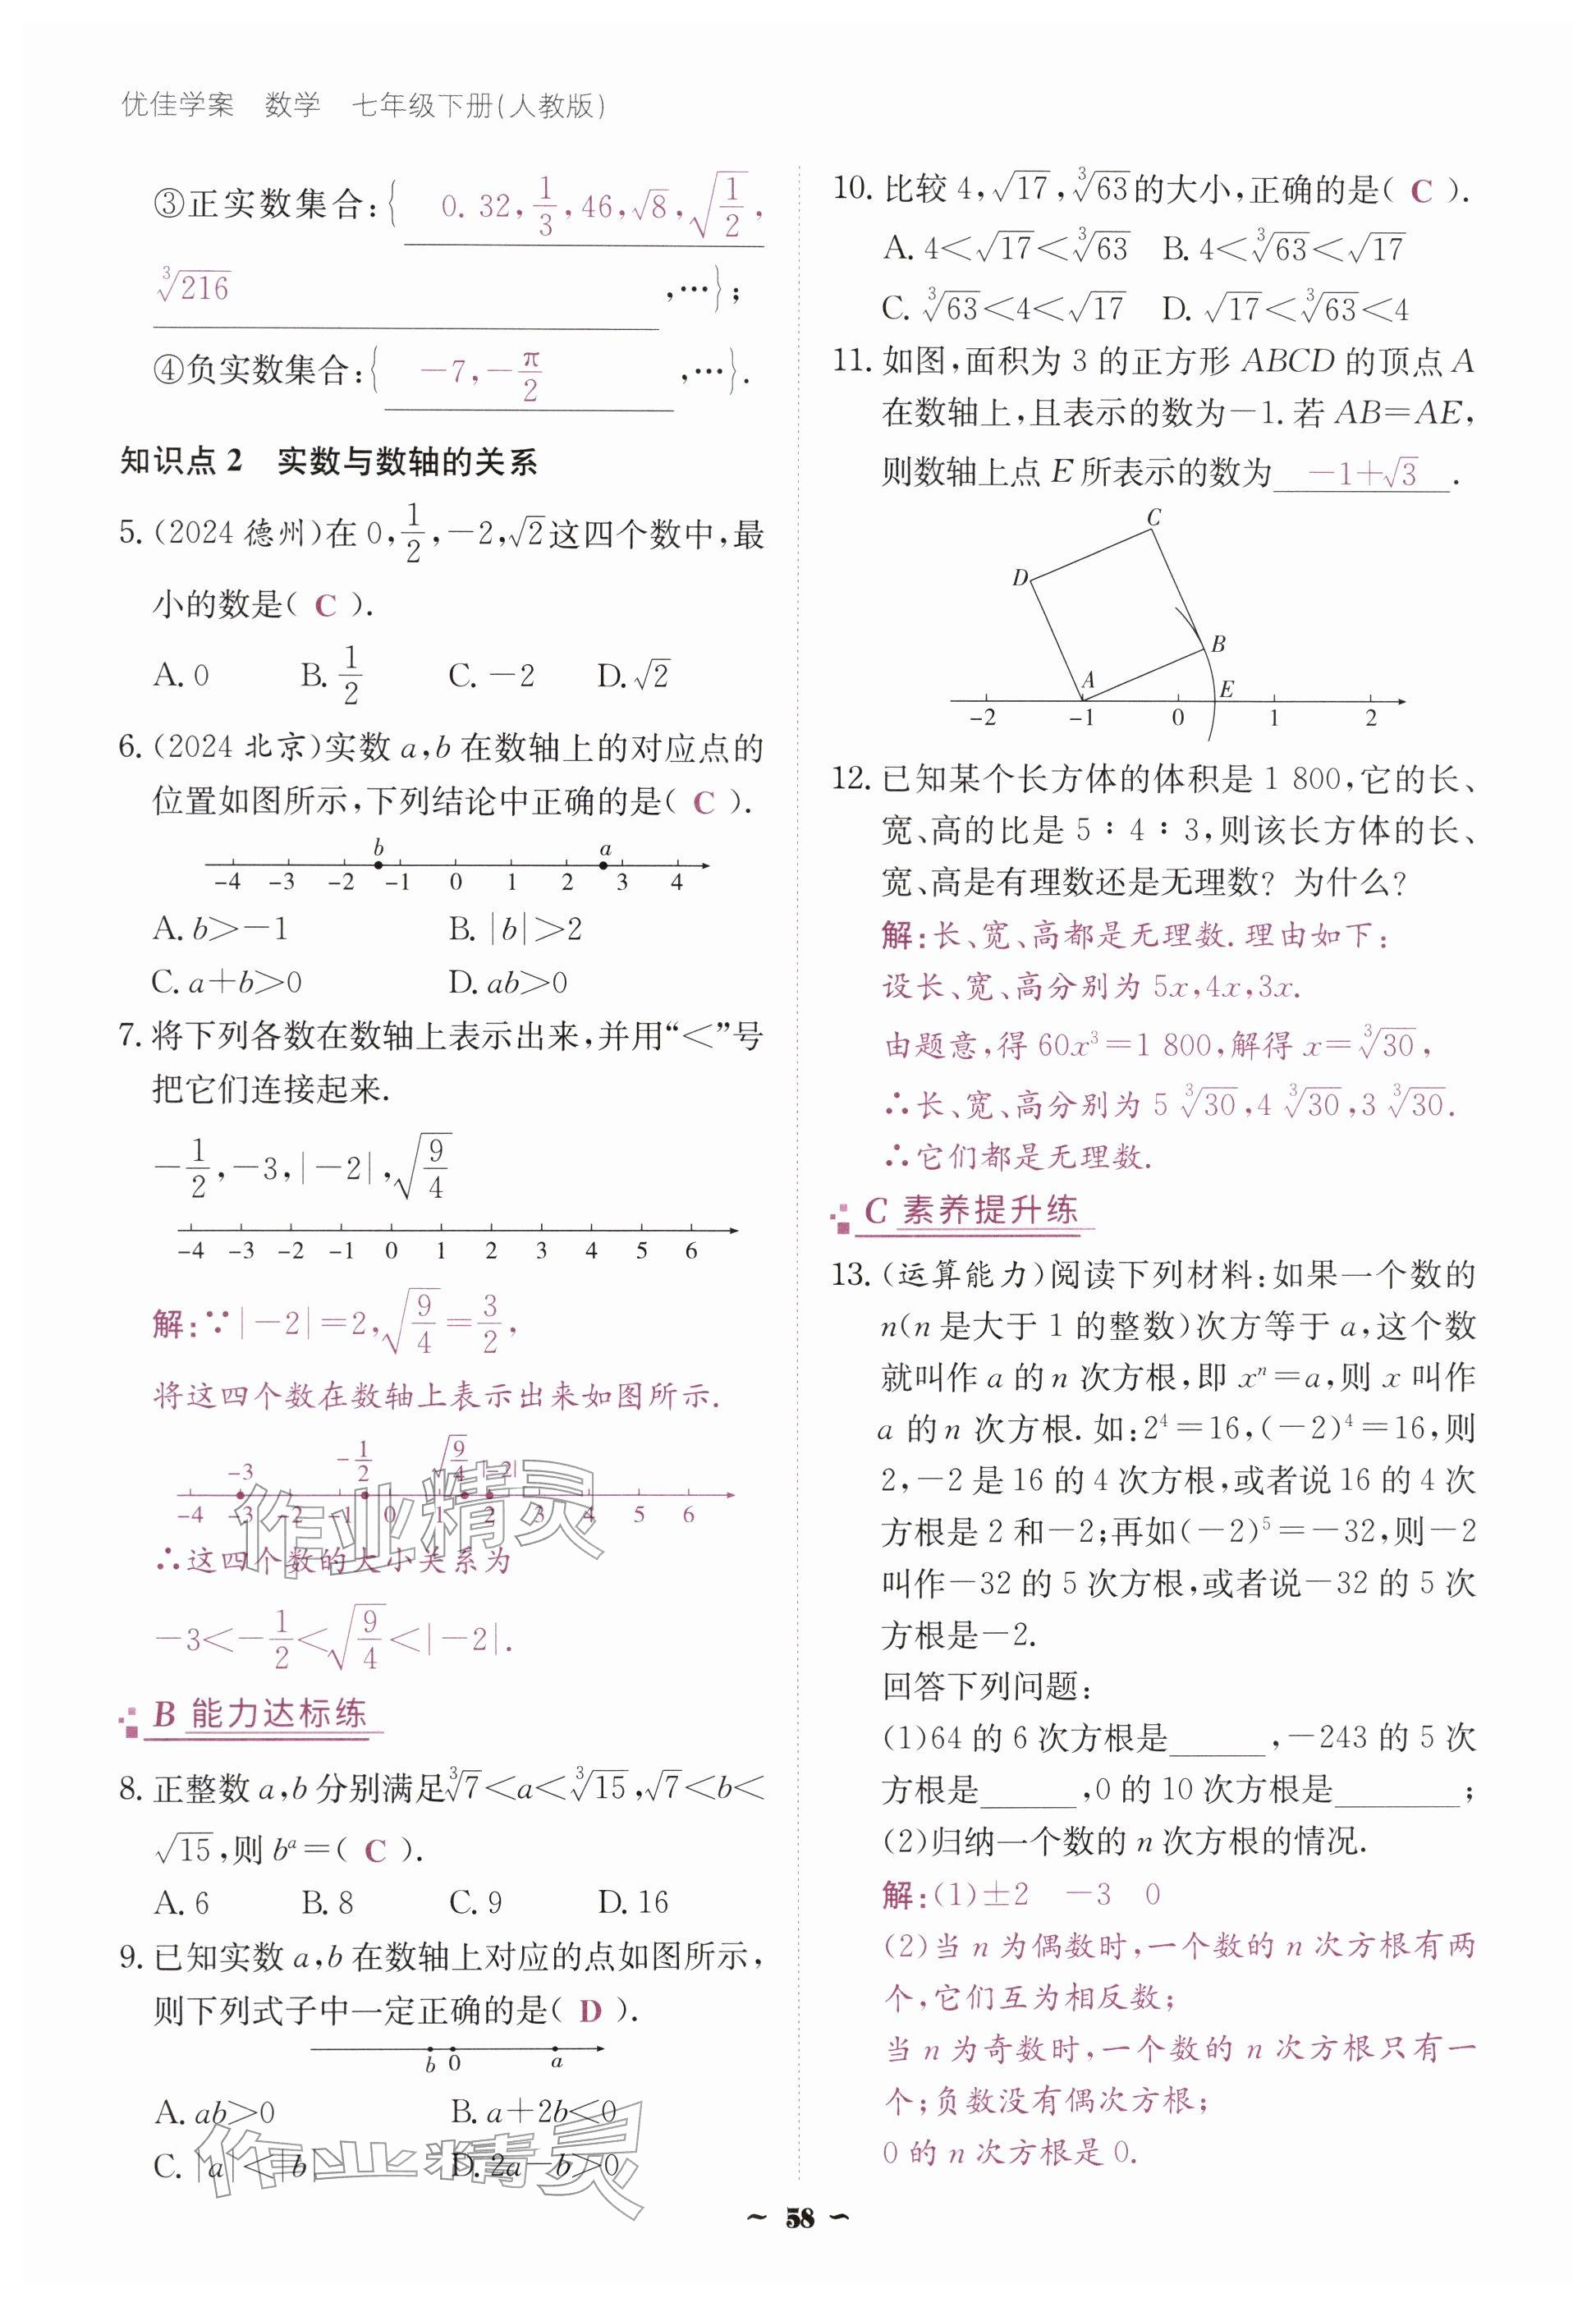 优佳学案　数学　七年级下册(人教版)
③正实数集合:{ 0.32, 1/3, 46, √8, √(1/2),
∛216 ,…};
④负实数集合:{ -7, -π/2 ,…}.
知识点2　实数与数轴的关系
5. (2024德州)在0, 1/2, -2, √2这四个数中,最
小的数是( C ).
A. 0　B. 1/2　C. -2　D. √2
6. (2024北京)实数a,b在数轴上的对应点的
位置如图所示,下列结论中正确的是( C ).
b　a
-4 -3 -2 -1 0 1 2 3 4
A. b>-1　B. |b|>2
C. a+b>0　D. ab>0
7. 将下列各数在数轴上表示出来,并用“<”号
把它们连接起来.
-1/2, -3, |-2|, √(9/4)
-4 -3 -2 -1 0 1 2 3 4 5 6
解:∵|-2|=2, √(9/4)=3/2,
将这四个数在数轴上表示出来如图所示.
-3　-1/2　√(9/4)　|-2|
-4 -3 -2 -1 0 1 2 3 4 5 6
作业精灵
∴这四个数的大小关系为
-3<-1/2<√(9/4)<|-2|.
B 能力达标练
8. 正整数a,b分别满足∛7<a<∛15, √7<b<
√15,则bᵃ=( C ).
A. 6　B. 8　C. 9　D. 16
9. 已知实数a,b在数轴上对应的点如图所示,
则下列式子中一定正确的是( D ).
b 0 a
A. ab>0　B. a+2b<0
C. |a|<|b|　D. 2a-b>0
作业精灵
10. 比较4, √17, ∛63的大小,正确的是( C ).
A. 4<√17<∛63　B. 4<∛63<√17
C. ∛63<4<√17　D. √17<∛63<4
11. 如图,面积为3的正方形ABCD的顶点A
在数轴上,且表示的数为-1.若AB=AE,
则数轴上点E所表示的数为 -1+√3 .
C
D
B
A　E
-2 -1 0 1 2
12. 已知某个长方体的体积是1 800,它的长、
宽、高的比是5∶4∶3,则该长方体的长、
宽、高是有理数还是无理数? 为什么?
解:长、宽、高都是无理数.理由如下:
设长、宽、高分别为5x,4x,3x.
由题意,得60x³=1 800,解得x=∛30,
∴长、宽、高分别为5∛30,4∛30,3∛30.
∴它们都是无理数.
C 素养提升练
13. (运算能力)阅读下列材料:如果一个数的
n(n是大于1的整数)次方等于a,这个数
就叫作a的n次方根,即xⁿ=a,则x叫作
a的n次方根.如:2⁴=16,(-2)⁴=16,则
2,-2是16的4次方根,或者说16的4次
方根是2和-2;再如(-2)⁵=-32,则-2
叫作-32的5次方根,或者说-32的5次
方根是-2.
回答下列问题:
(1)64的6次方根是______,-243的5次
方根是______,0的10次方根是________;
(2)归纳一个数的n次方根的情况.
解:(1)±2　-3　0
(2)当n为偶数时,一个数的n次方根有两
个,它们互为相反数;
当n为奇数时,一个数的n次方根只有一
个;负数没有偶次方根;
0的n次方根是0.
~ 58 ~